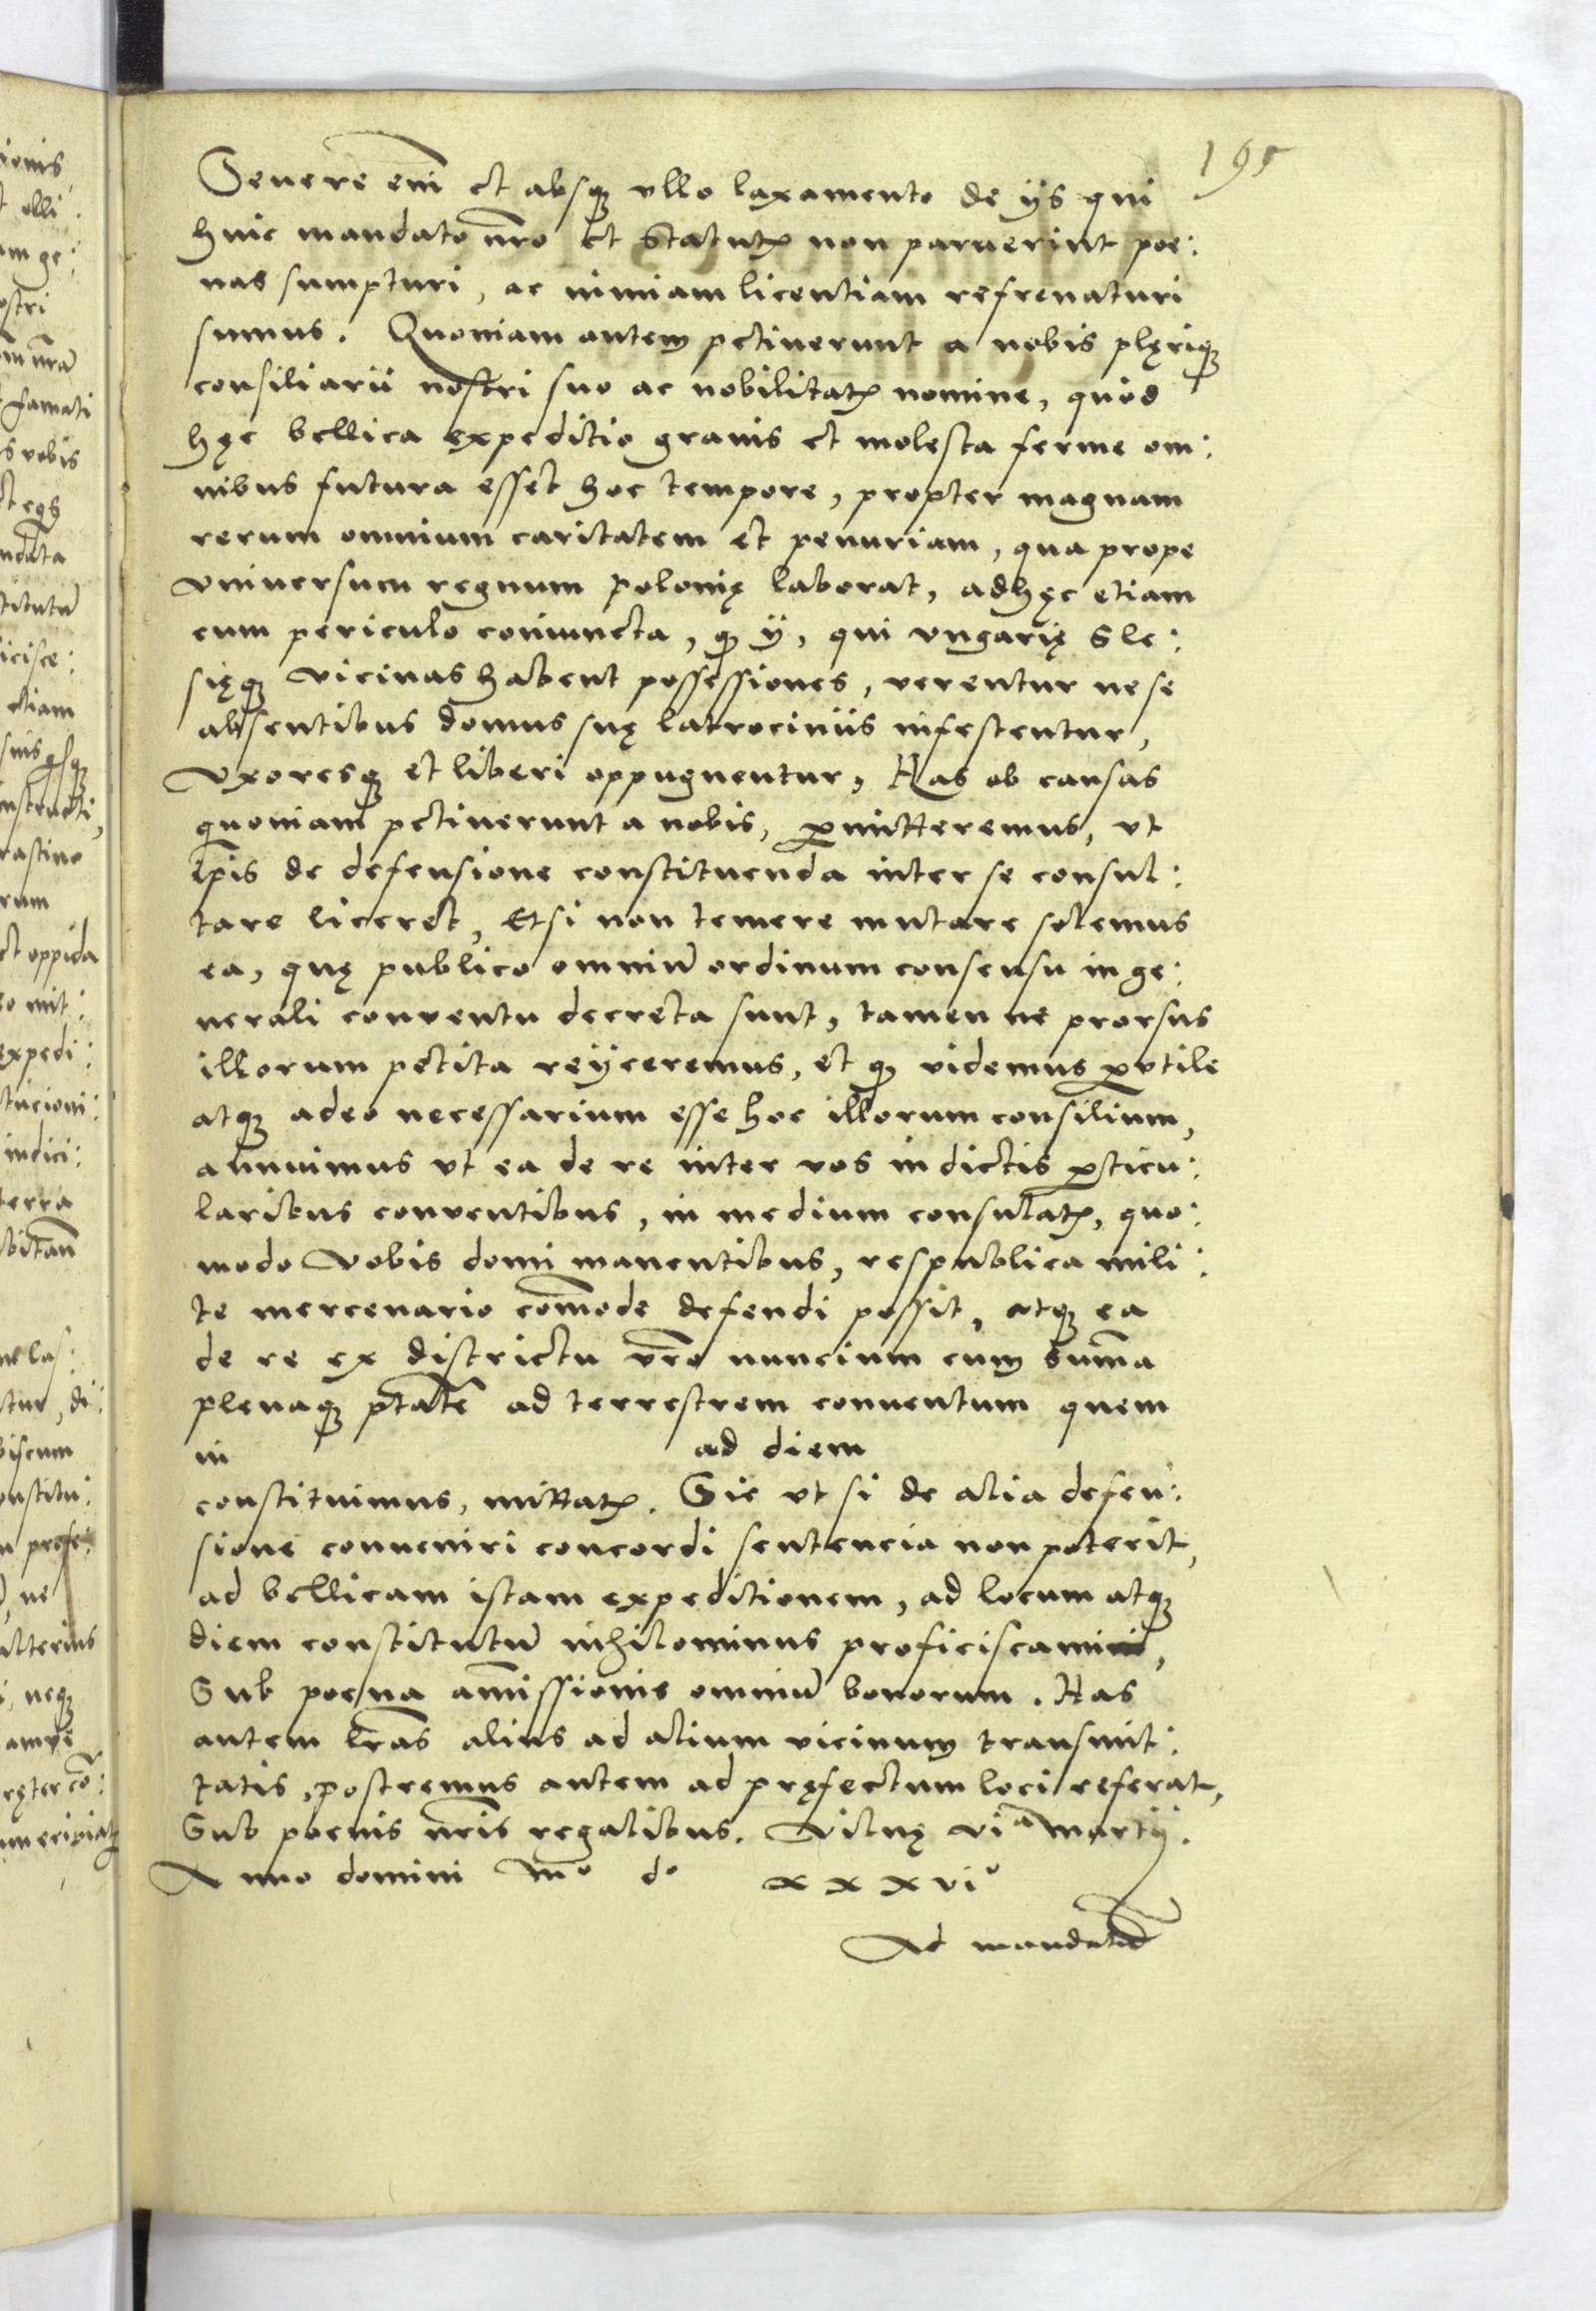 195
Seuere em̄ et absq₃ vllo laxamento de ijs qui
huic mandato nr̄o et Statutꝭ non paruerint poe:
nas sumpturi, ac nimiam licentiam refrenaturi
sumus. Quoniam autem petiuerunt a nobis plęriq₃
consiliarii nostri suo ac nobilitatꝭ nomine, quòd
hęc bellica expeditio grauis et molesta ferme om:
nibus futura esset hoc tempore, propter magnam
rerum omnium caritatem et penuriam, qua prope
vniuersum regnum polonię laborat, adhęc etiam
cum periculo coniuncta, ꝙ ij, qui vngarię Sle:
sięq₃ vicinas habent possessiones, verentur ne se
absentibus domus suę latrociniis infestentur,
vxoresq₃ et liberi oppugnentur, Has ob causas
quoniam petiuerunt a nobis, ꝑmitteremus, vt
ip̄is de defensione constituenda inter se consul:
tare liceret, Etsi non temere mutare solemus
ea, quę publico omniū ordinum consensu in ge:
nerali conventu decreta sunt, tamen ne prorsus
illorum petita reijceremus, et ꝙ videmus ꝑvtile
atq₃ adeo necessarium esse hoc illorum consilium,
annuimus vt ea de re inter vos in dictis ꝑticu:
laribus conventibus, in medium consulatꝭ, quo:
modo vobis domi manentibus, respublica mili:
te mercenario com̄ode defendi possit, atq₃ ea
de re ex districtu vr̄o nuncium cum sum̄a
plenaq₃ ptātē ad terrestrem conuentum quem
in ad diem
constituimus, mittatꝭ. Sic vt si de alia defen:
sione conueniri concordi sentencia non poterit,
ad bellicam istam expeditionem, ad locum atq₃
diem constitutū nihilominus proficiscamini,
Sub poena am̄issionis omniū bonorum. Has
autem lr̄as alius ad alium vicinum transmit:
tatis, postremus autem ad pręfectum loci referat,
Sub poenis nr̄is regalibus. Vilnę viᵃ martij.
Anno domini Mº dº xxxviº
Ad mandatū